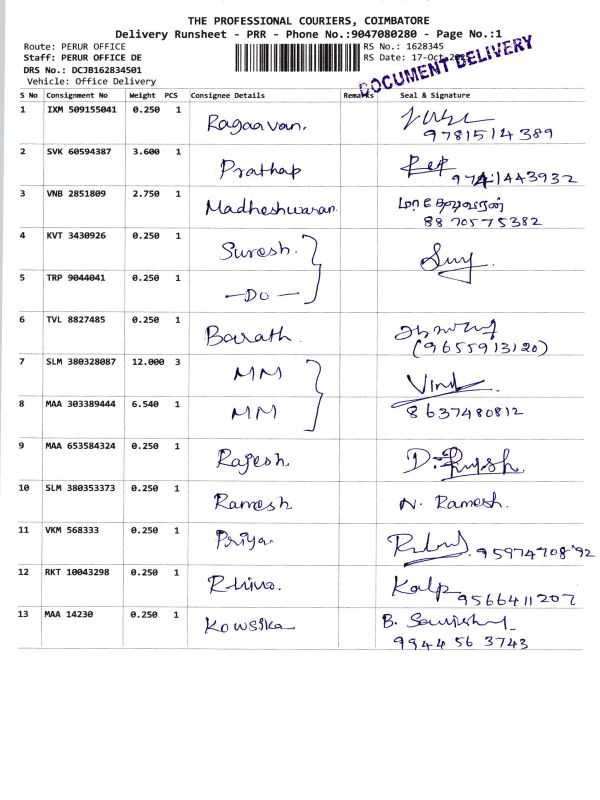 THE PROFESSIONAL COURIERS, COIMBATORE
Delivery Runsheet - PRR - Phone No.:9047080280 - Page No.:1
Route: PERUR OFFICE RS No.: 1628345
Staff: PERUR OFFICE DE RS Date: 17-Oct-2025
DOCUMENT DELIVERY
DRS No.: DCJB162834501
Vehicle: Office Delivery
S No Consignment No Weight PCS Consignee Details Remarks Seal & Signature
1 IXM 509155041 0.250 1 Ragaavan.
9781514389
2 SVK 60594387 3.600 1 Prathap
9741443932
3 VNB 2851809 2.750 1 Madheshwaran மாதேஷ்வரன்
8870575382
4 KVT 3430926 0.250 1 Suresh.
5 TRP 9044041 0.250 1 —DO—
6 TVL 8827485 0.250 1 Barath.
(9655913120)
7 SLM 380328087 12.000 3 MM
8 MAA 303389444 6.540 1 MM 8637480812
9 MAA 653584324 0.250 1 Rajesh
10 SLM 380353373 0.250 1 Ramesh N. Ramesh.
11 VKM 568333 0.250 1 Priya.
9597470892
12 RKT 10043298 0.250 1 Kalp
9566411207
13 MAA 14230 0.250 1 Kowsika
9944 56 3743